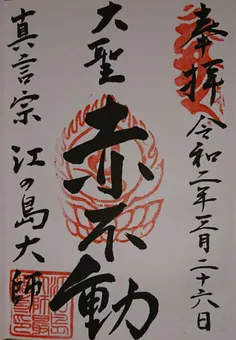 奉拝
令和二年三月二十六日
大聖
赤不動
真言宗 江の島大師